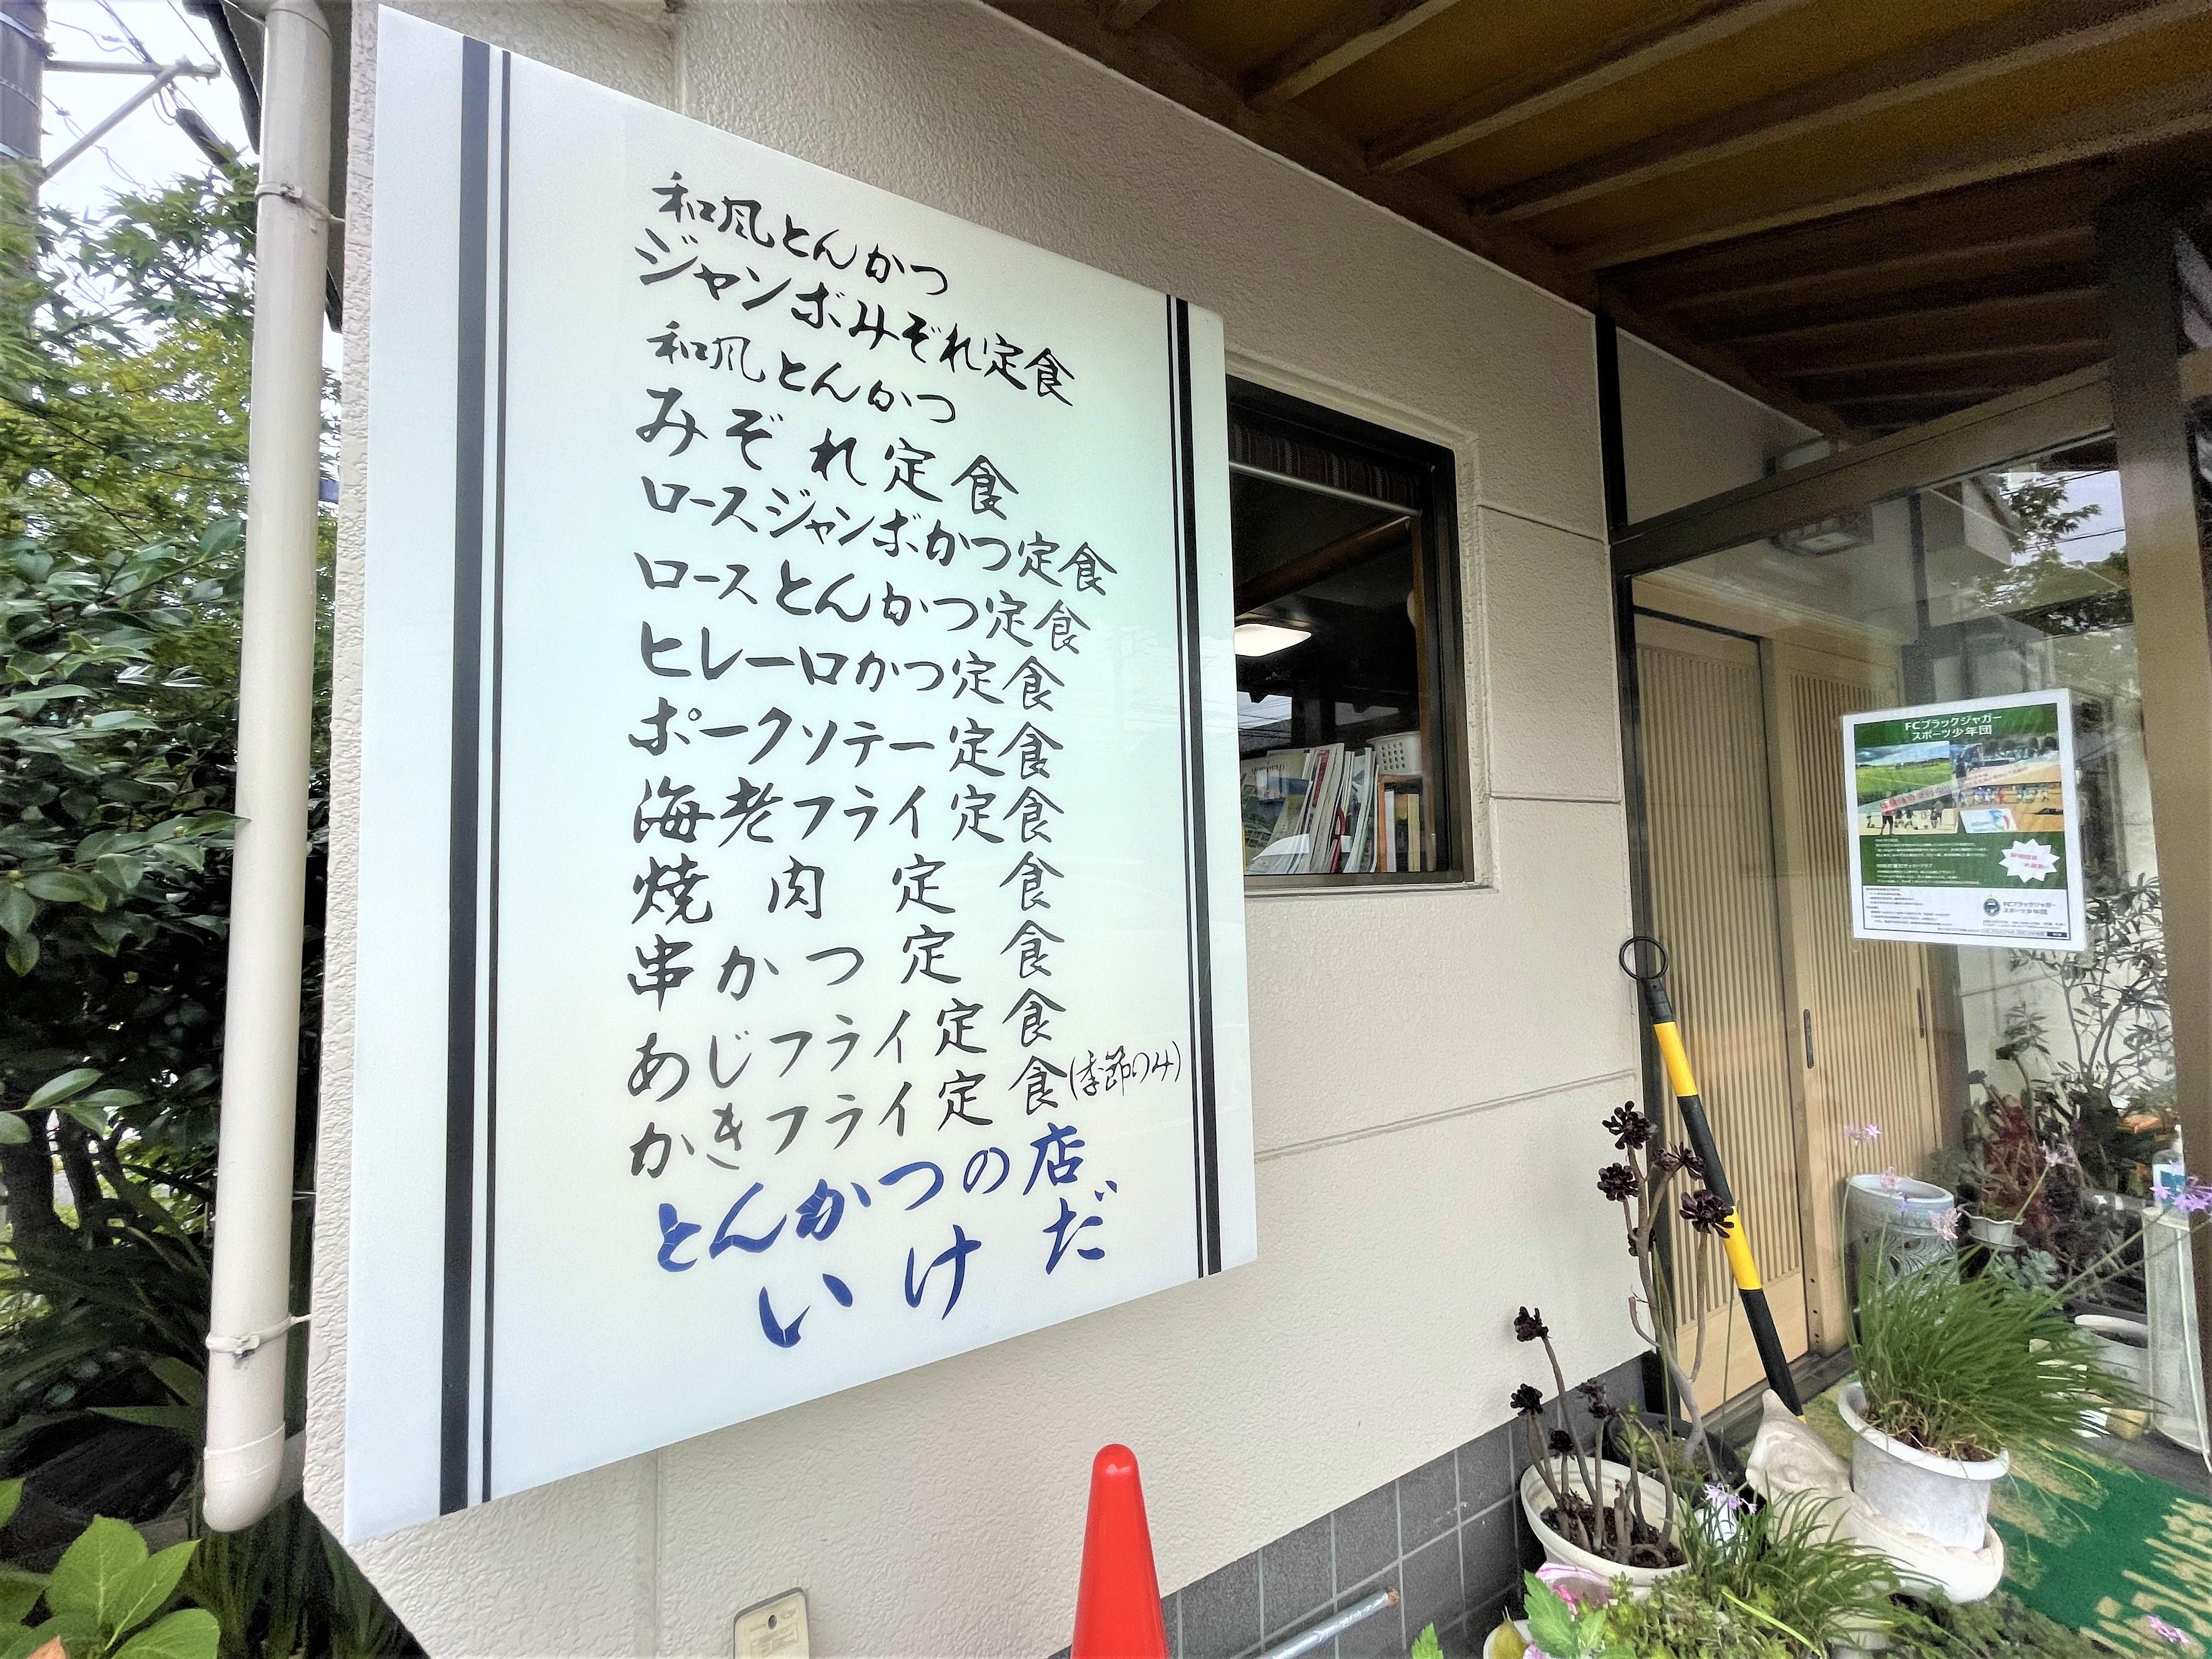 和風とんかつ
ジャンボみぞれ定食
和風とんかつ
みぞれ定食
ロースジャンボかつ定食
ロースとんかつ定食
ヒレ一口かつ定食
ポークソテー定食
海老フライ定食
焼肉定食
串かつ定食
あじフライ定食
かきフライ定食(季節のみ)
とんかつの店
いけだ
FCブラックジャガー
スポーツ少年団
FCブラックジャガー
スポーツ少年団